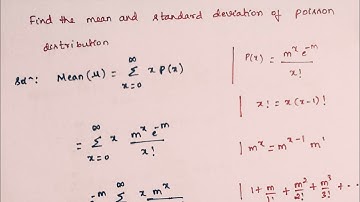 Find the mean and standard deviation of poisson
distribution
Solⁿ: Mean (μ) = ∑_{x=0}^{∞} x P(x)
| P(x) = m^x e^{-m} / x!
| x! = x (x-1)!
= ∑_{x=0}^{∞} x m^x e^{-m} / x!
| m^x = m^{x-1} m^1
= e^{-m} ∑^{∞} x m^x
| 1 + m/1! + m²/2! + m³/3! + ..